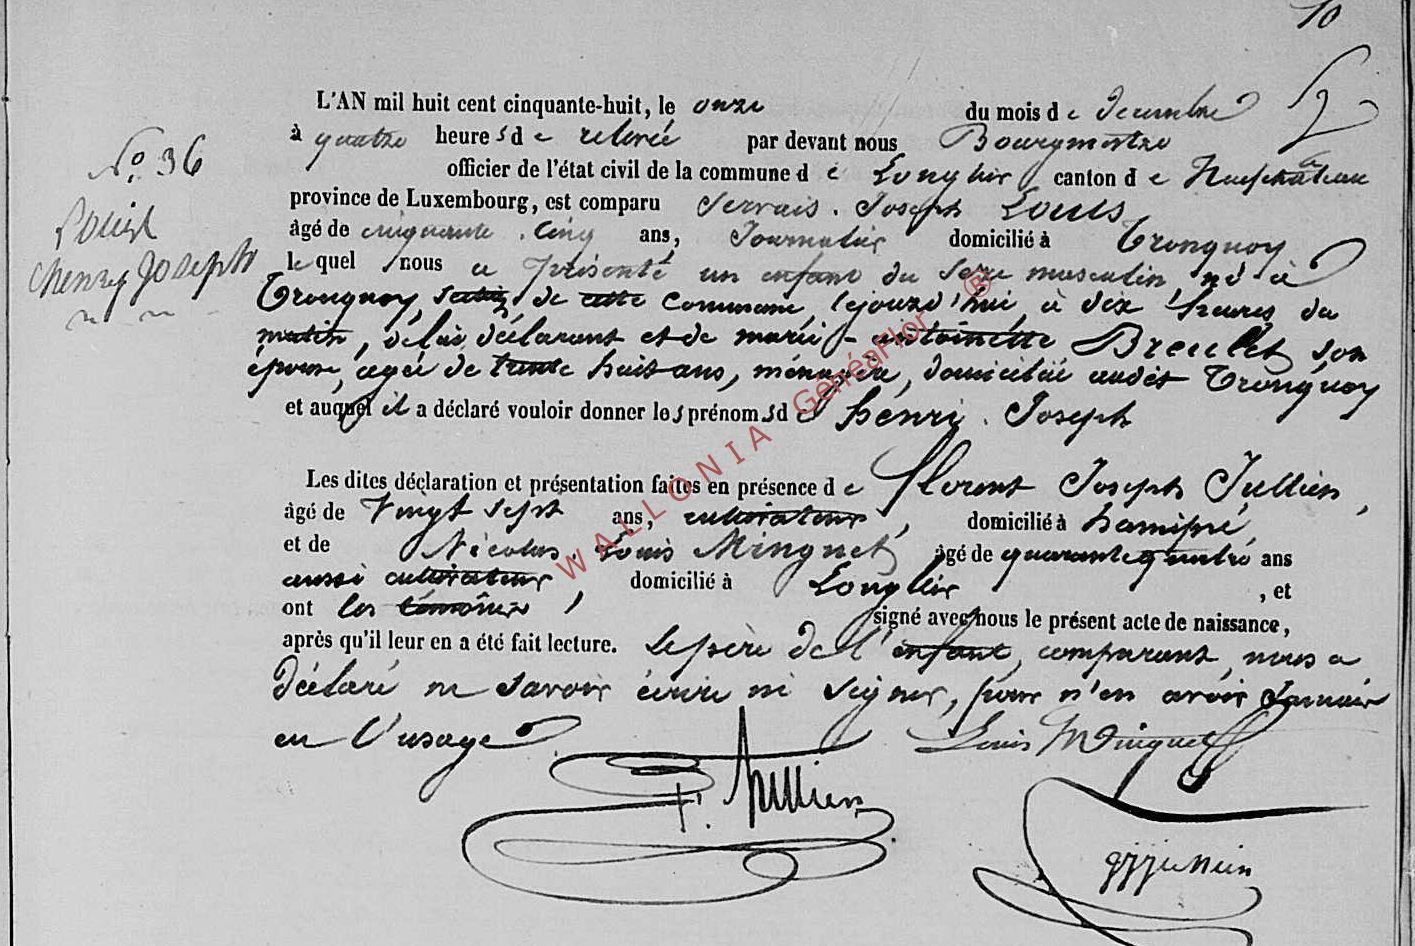 10
L'AN mil huit cent cinquante-huit, le onze du mois de decembre
à quatre heures de relevée par devant nous Bourgmestre
No. 36
officier de l'état civil de la commune de Longlier canton de Neufchateau
province de Luxembourg, est comparu Servais Joseph Louis
Louis
âgé de cinquante cinq ans, Journalier domicilié à Tronquoy
henry Joseph
lequel nous a présenté un enfant du sexe masculin, né à
Tronquoy, section de cette commune, cejourd'hui, à dix heures du
matin, de lui déclarant et de marie antoinette Breulet son
épouse, agée de trente huit ans, ménagère, domiciliée audit Tronquoy
et auquel il a déclaré vouloir donner les prénoms de henri Joseph
Les dites déclaration et présentation faites en présence de florent Joseph Jullien,
âgé de Vingt sept ans, cultivateur, domicilié à hamipré
et de Nicolas Louis Minguet âgé de quarante quatre ans
aussi cultivateur, domicilié à Longlier, et
ont les témoins signé avec nous le présent acte de naissance,
après qu'il leur en a été fait lecture. le père de l'enfant, comparant, nous a
déclaré ne savoir écrire ni signer, pour n'en avoir Jamais
eu l'usage
Louis Minguet
F. Jullien
WALLONIA GénéaFlor ®